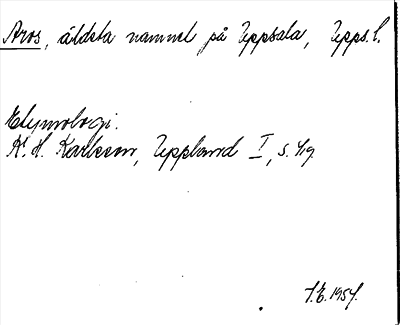 Aros, äldsta namnet på Uppsala, Upps. l.
Etymologi.
K. H. Karlsson, Uppland I, s. 419
S.E. 1954.